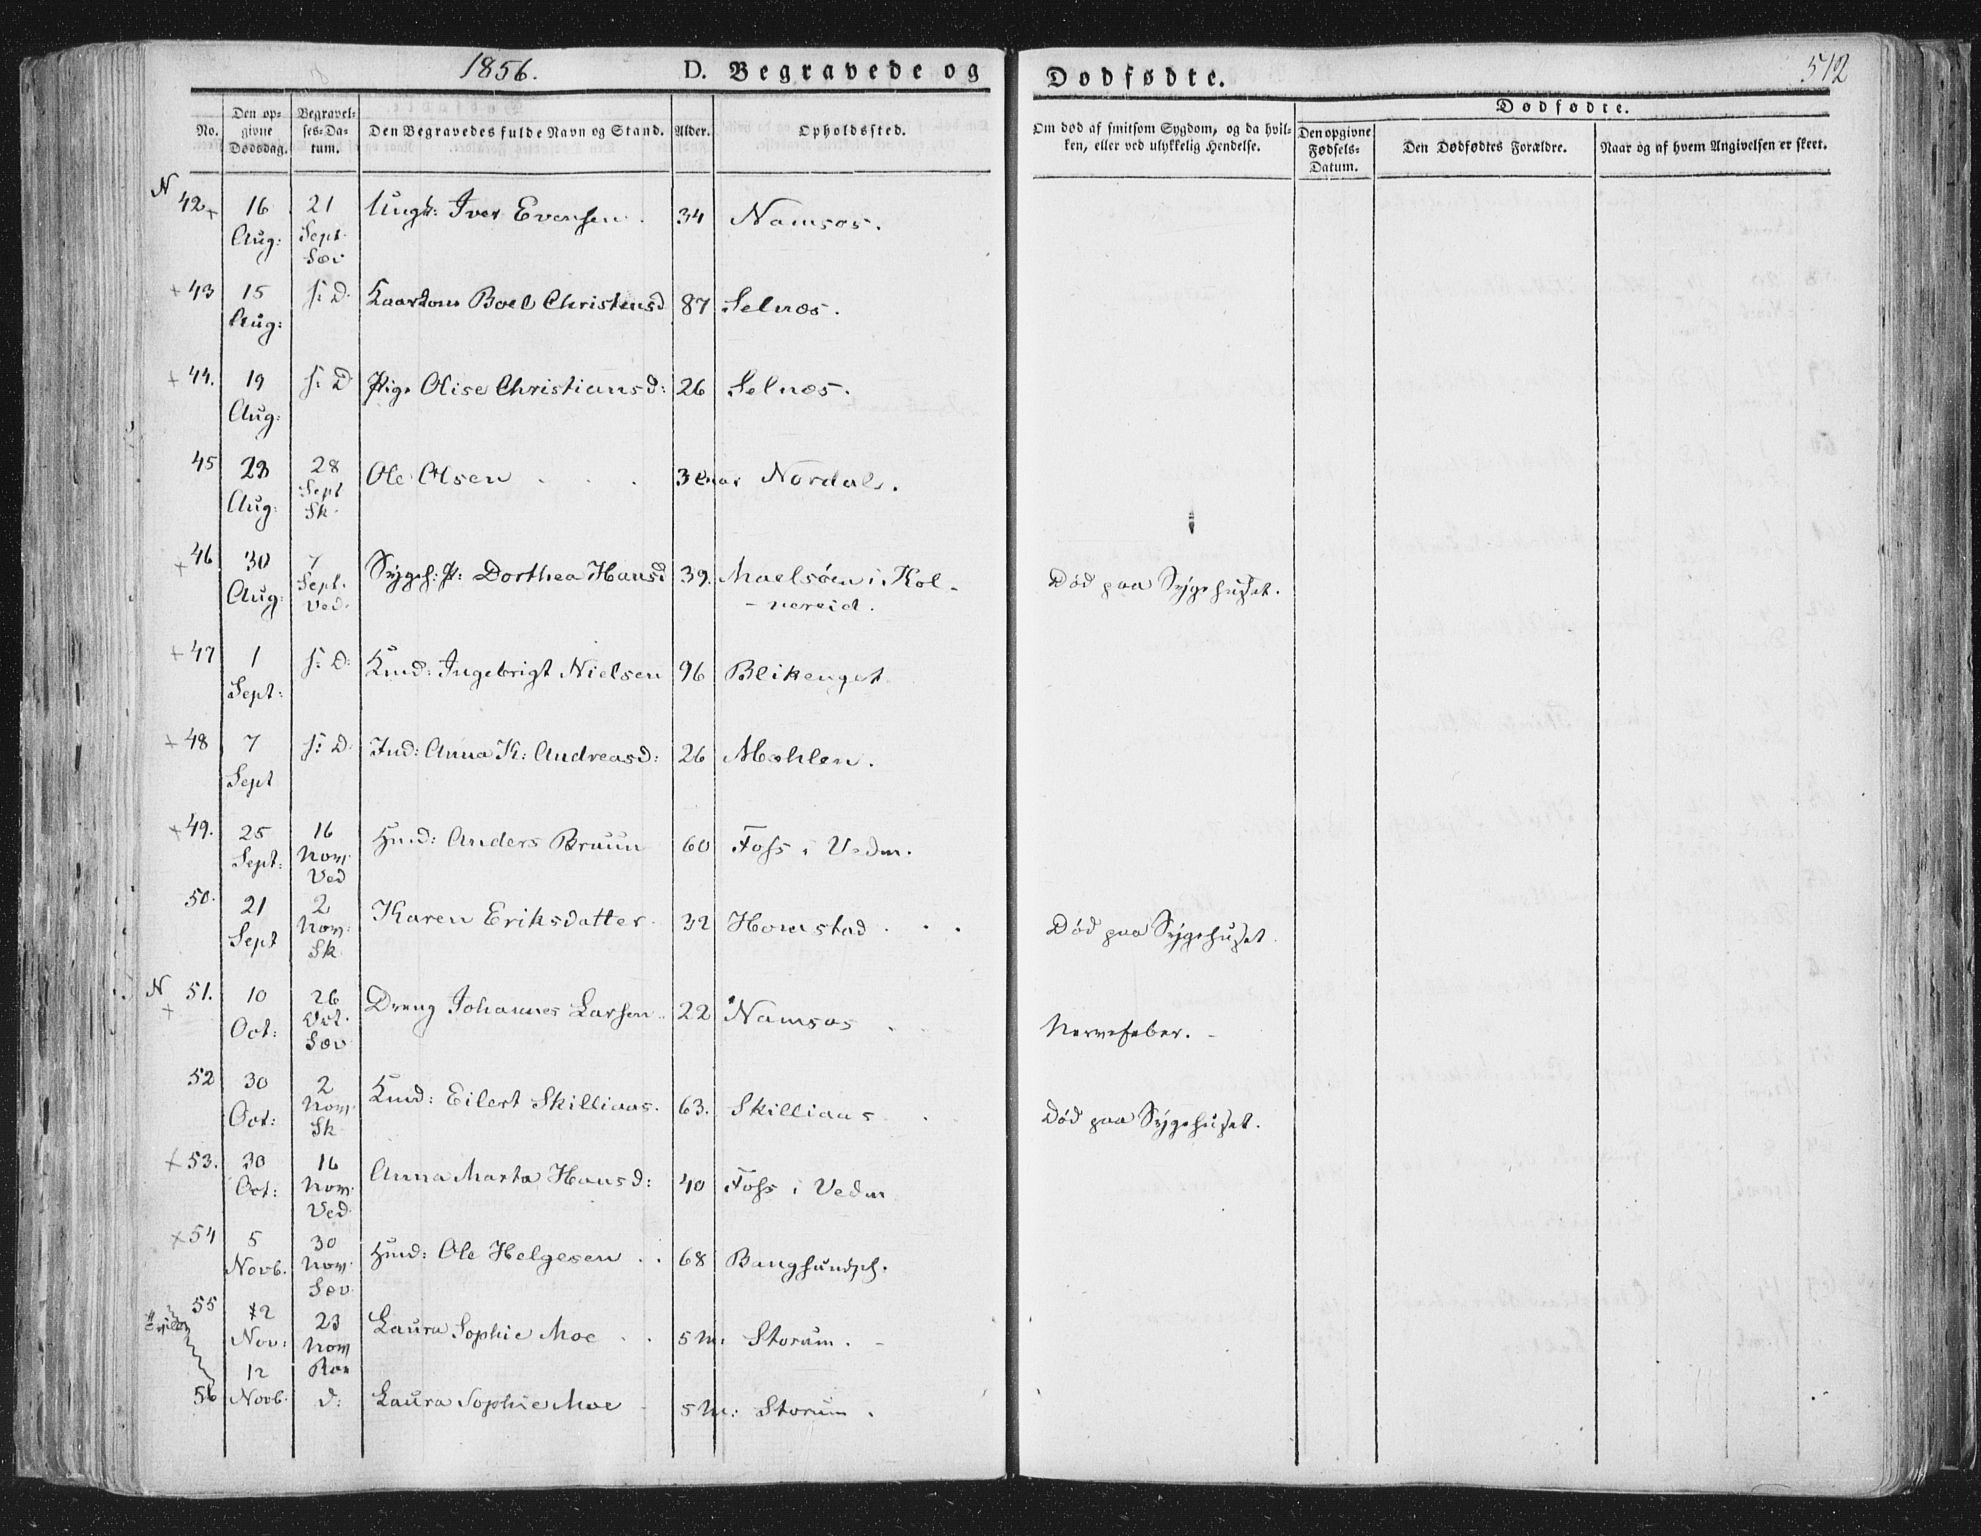 1856. D. Begravede og Dødfødte. 512
No. Den opgivne Dødsdag. Begravelses-Datum. Den Begravedes fulde Navn og Stand. Alder. Opholdssted. Om død af smitsom Sygdom, og da hvilken, eller ved ulykkelig Hendelse. Dødfødte. Den opgivne Fødsels-Datum. Den Dødfødtes Forældre. Naar og af hvem Angivelsen er skeet.
N 42 + 16 Aug: 21 Sept. Sæv Ungk: Iver Evensen. 34 Namsos.
+ 43 15 Aug: s: D. Boel Christensd 87 Selnæs.
+ 44. 19 Aug: s: D Pige Olise Christiansd: 26 Selnæs.
45 23 Aug: 28 Sept Sk. Ole Olsen 3 Nordals.
+ 46 30 Aug: 7 Sept. Ved. Dorthea Hansd 39. Maelsøen i Kol-
-nereid. Død paa Sygehuset.
+ 47 1 Sept: s: D: Ingebrigt Nielsen 96 Blikenget
+ 48 7 Sept s: D. Ind: Anna K: Andreasd: 26 Mohlen.
+ 49. 25 Sept: 16 Nov. Ved Hmd: Anders Bruun 60 Foss i Vedm.
50. 21 Sept 2 Nov: Sk. Karen Eriksdatter. 32 Homstad . . . Død paa Sygehuset.
N + 51. 10 Oct: 26 Oct. Sæv Dreng Johannes Larsen. 22 Namsos Nervefeber. -
52 30 Oct: 2 Nov. Sk Kmd: Eilert Skilliaas. 63. Skilliaas Død paa Sygehuset.
+ 53. 30 Oct: 16 Nov. Ved. Anna Marta Hansd: 40 Foss i Vedm
+ 54 5 Novb. 30 Nov. Sæv. Hmd: Ole Helgesen . . 68 Bangsundpl.
55 12 Nov: 23 Nov Laura Sophie Moe . . 5 M: Storum. -
56 12 Novb. d: Laura Sophie Moe - 5 M: Storum .